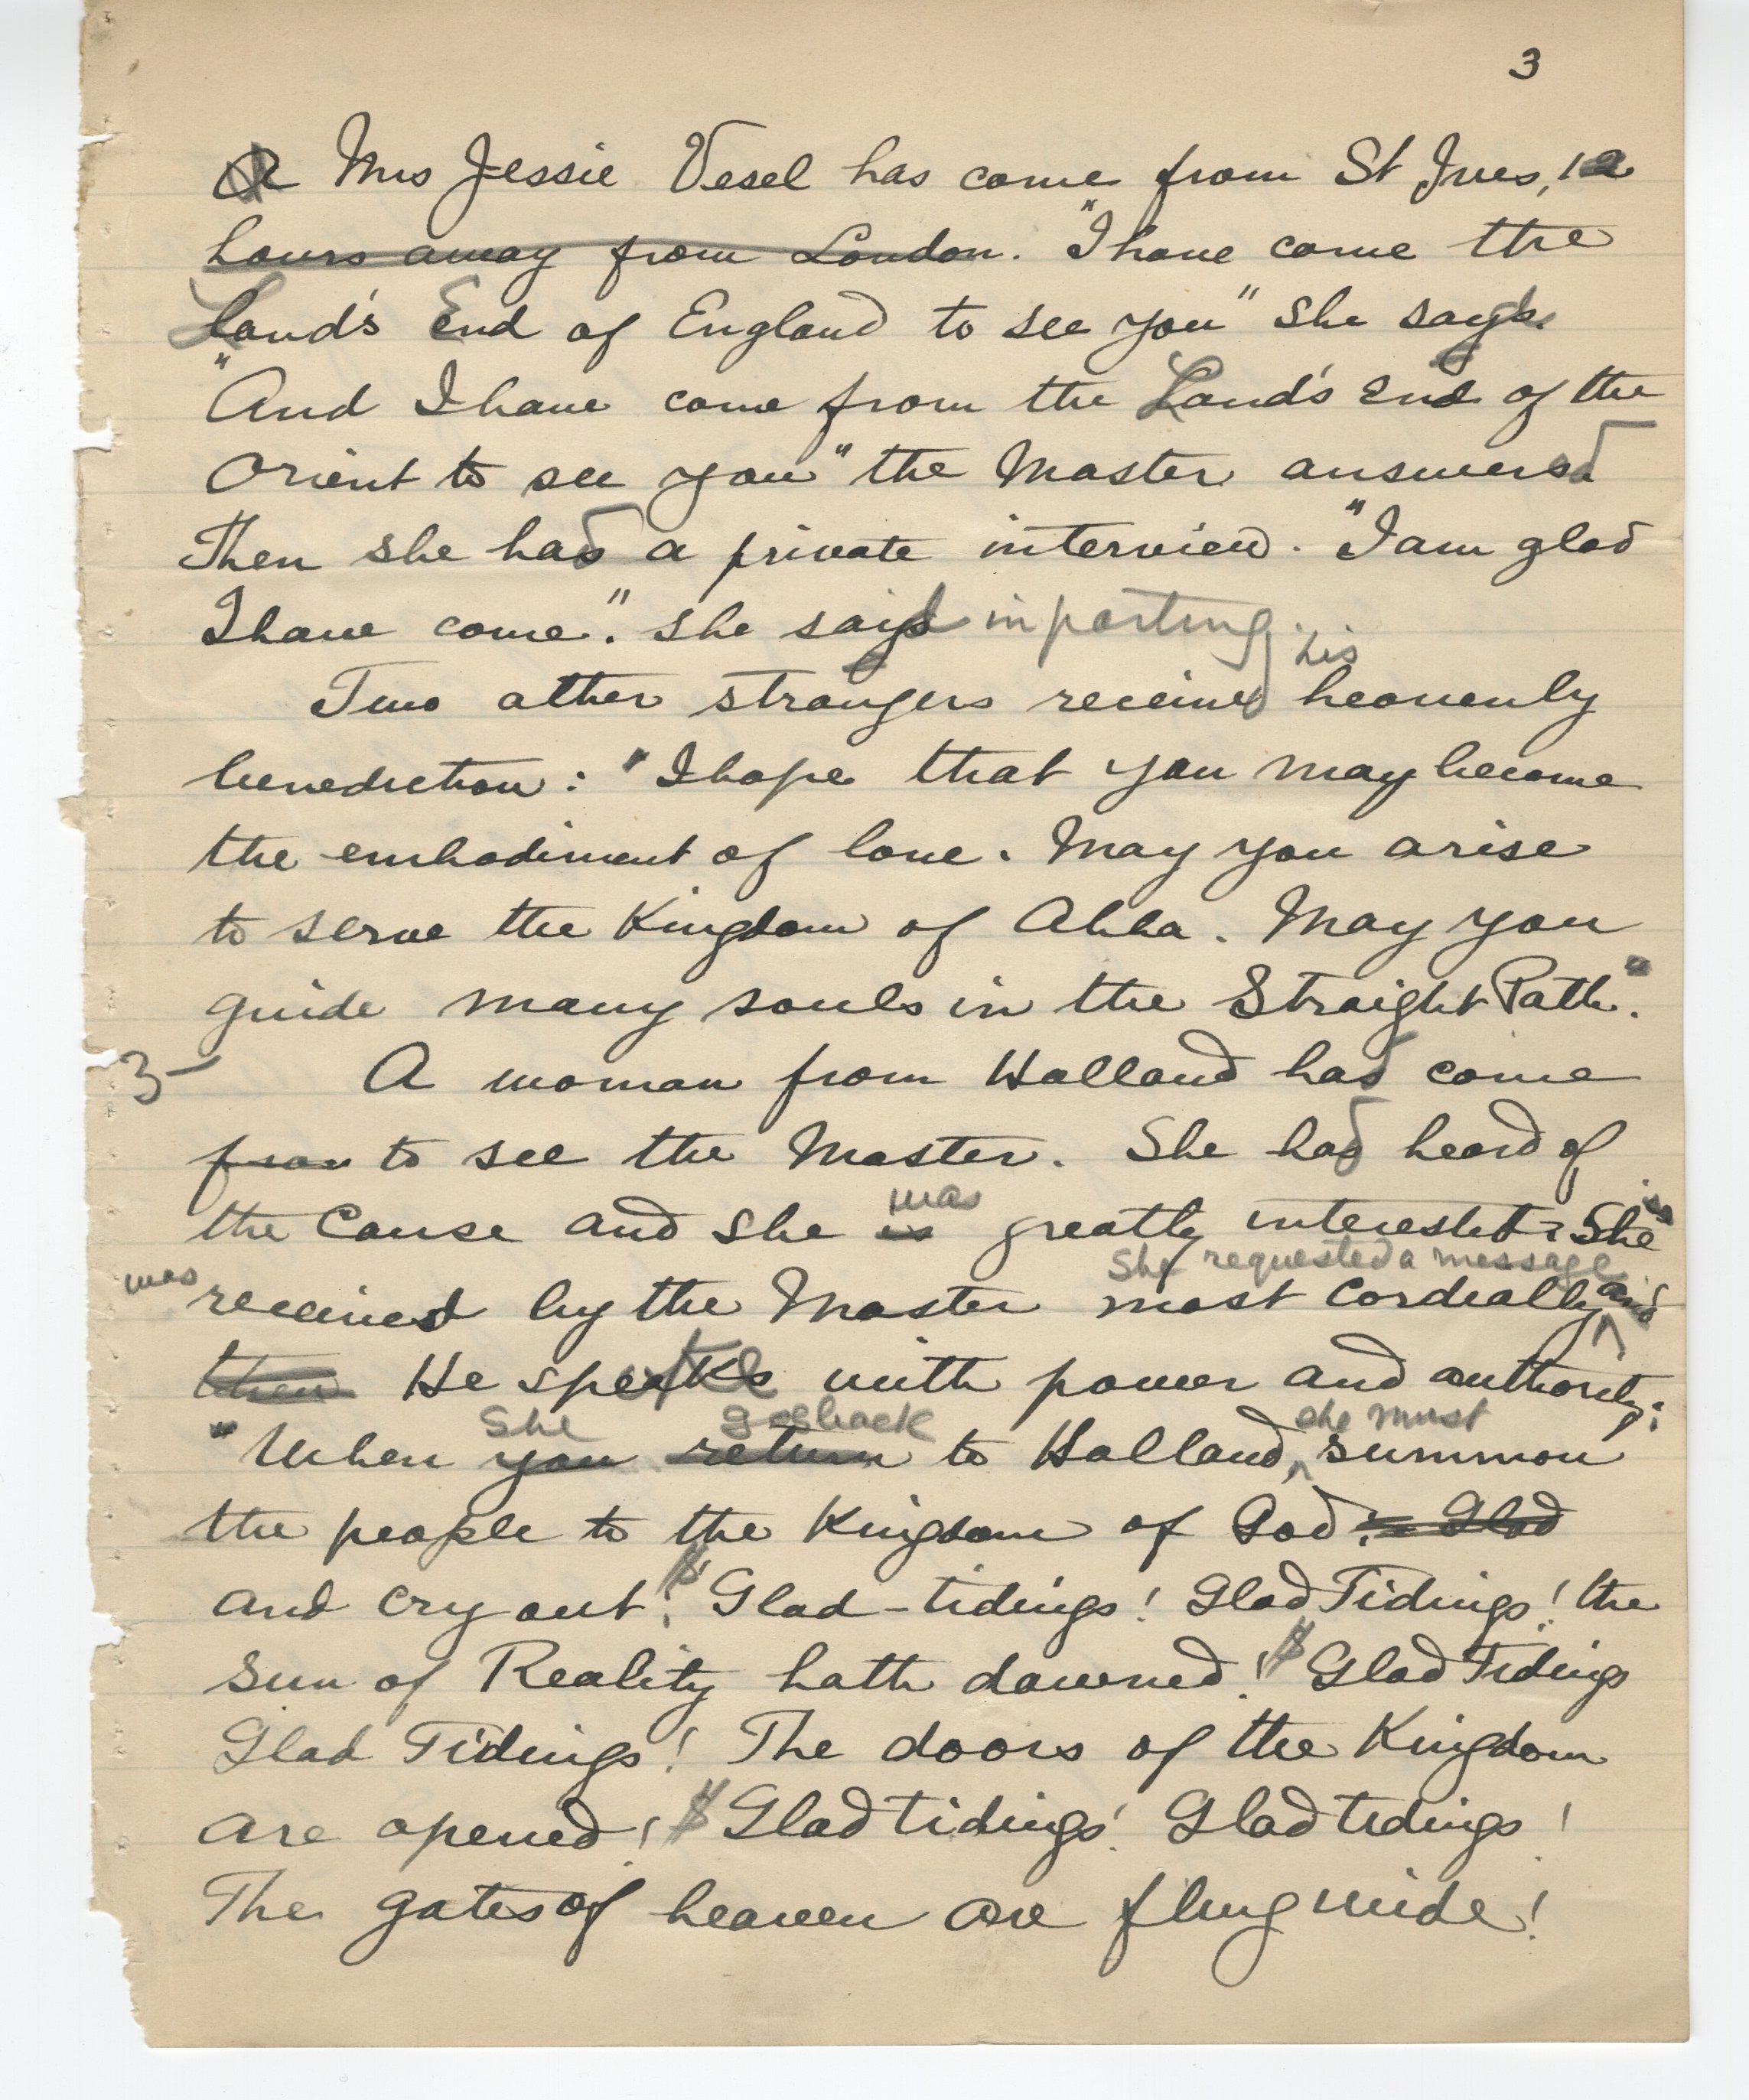 3
A Mrs Jessie Vesel has come from St Ives, 12
hours away from London. "I have come the
Land's End of England to see you" she said.
"And I have come from the Land's End of the
Orient to see you" the Master answered
Then she had a private interview. "I am glad
I have come." she said in parting.
his
Two other strangers received heavenly
benediction: "I hope that you may become
the embodiment of love. May you arise
to serve the Kingdom of Abha. May you
guide many souls in the Straight Path".
3- A woman from Holland had come
from to see the Master. She had heard of
was
the Cause and she is greatly interested. She is
She requested a message
was received by the Master most cordially and
then He spoke with power and authority:
She go back she must
"When you return to Holland, summon
the people to the Kingdom of God. Glad
and cry out! Glad-tidings! Glad Tidings! the
Sun of Reality hath dawned! Glad Tidings
Glad Tidings! The doors of the Kingdom
are opened! Glad tidings! Glad tidings!
The gates of heaven are flung wide!